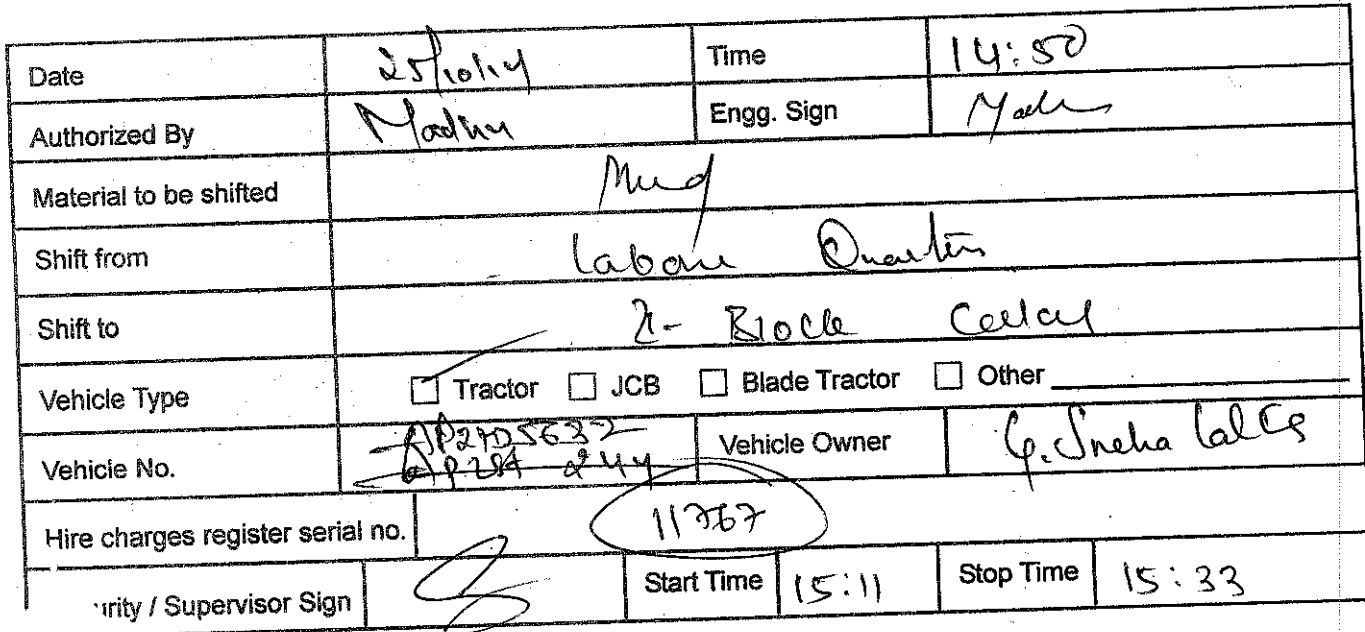 Date 25/10/14 Time 14:50
Authorized By Madhu Engg. Sign Madhu
Material to be shifted Mud
Shift from Labour Quarters
Shift to Block
Vehicle Type Tractor JCB Blade Tractor Other
Vehicle No. Vehicle Owner G. Sneha
Hire charges register serial no. 11767
urity / Supervisor Sign Start Time 15:11 Stop Time 15:33